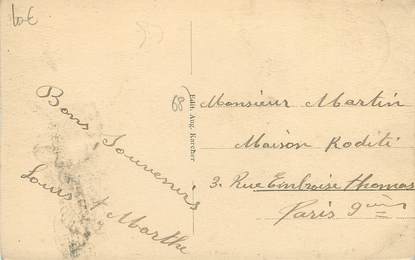 10€
Bons Souvenirs
Louis & Marthe
68
Edit. Aug. Kercher
Monsieur Martin
Maison Roditi
3. Rue Embroise Thomas
Paris 9ème